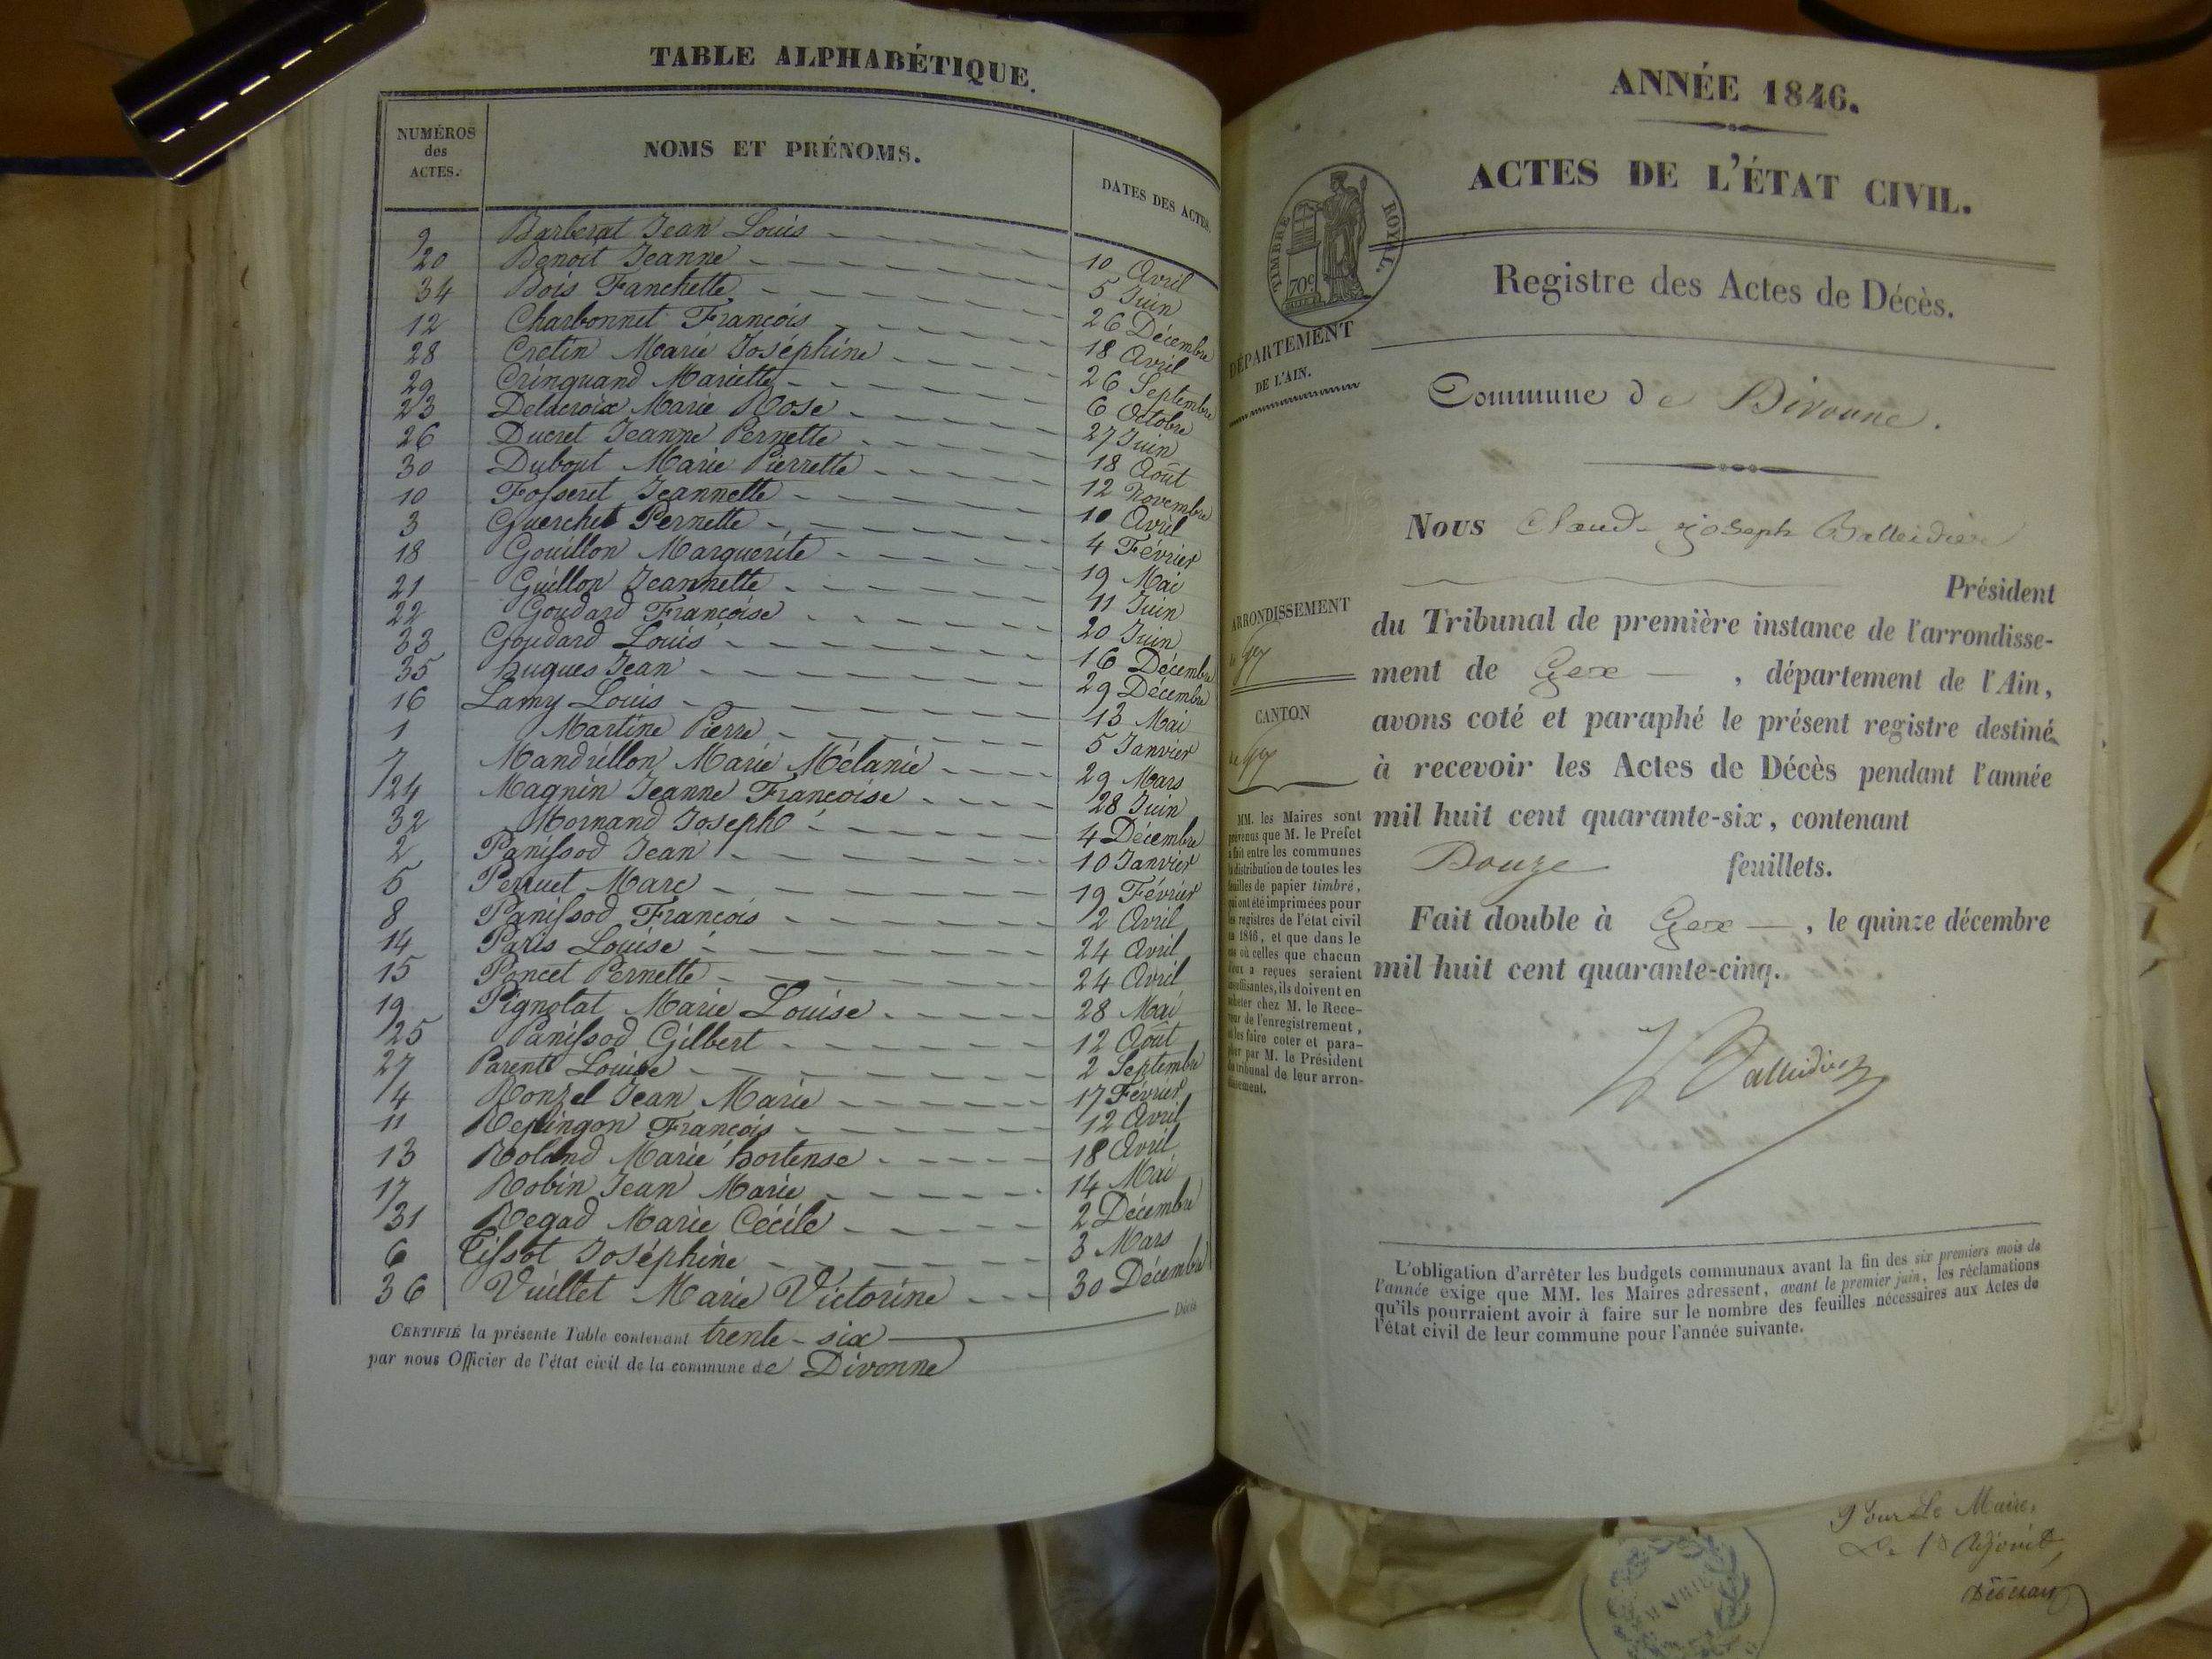 TABLE ALPHABÉTIQUE.
NUMÉROS
des
ACTES.
NOMS ET PRÉNOMS.
DATES DES ACTES.
9 Barberat Jean Louis 10 Avril
20 Benoit Jeanne 5 Juin
34 Bois Fanchette 26 Décembre
12 Charbonnet François 18 Avril
28 Cretin Marie Joséphine 26 Septembre
29 Cringuand Mariette 6 Octobre
23 Delacroix Marie Rose 27 Juin
26 Ducret Jeanne Pernette 18 Août
30 Dubout Marie Pierrette 12 Novembre
10 Fosseret Jeannette 10 Avril
3 Guerchet Pernette 4 Février
18 Gouillon Marguerite 19 Mai
21 Guillon Jeannette 11 Juin
22 Goudard Françoise 20 Juin
33 Goudard Louis 16 Décembre
35 hugues Jean 29 Décembre
16 Lamy Louis 13 Mai
1 Martine Pierre 5 Janvier
7 Mandrillon Marie Mélanie 29 Mars
24 Magnin Jeanne Françoise 28 Juin
32 Mornand Joseph 4 Décembre
2 Panissod Jean 10 Janvier
5 Perruet Marc 19 Février
8 Panissod François 2 Avril
14 Paris Louise 24 Avril
15 Poncet Pernette 24 Avril
19 Pignolat Marie Louise 28 Mai
25 Panissod Gilbert 12 Août
27 Parent Louise 2 Septembre
4 Ronzel Jean Marie 17 Février
11 François 12 Avril
13 Roland Marie hortense 18 Avril
17 Robin Jean Marie 14 Mai
31 Regad Marie Cécile 2 Décembre
6 Tissot Joséphine 3 Mars
36 Vuillet Marie Victorine 30 Décembre
CERTIFIÉ la présente Table contenant trente-six Décès
par nous Officier de l'état civil de la commune de Divonne
ANNÉE 1846.
ACTES DE L'ÉTAT CIVIL.
TIMBRE ROYAL.
70c
Registre des Actes de Décès.
DÉPARTEMENT
DE L'AIN.
Commune de Divonne.
Nous Claude joseph Balleidier
Président
du Tribunal de première instance de l'arrondisse-
ment de Gex, département de l'Ain,
avons coté et paraphé le présent registre destiné
à recevoir les Actes de Décès pendant l'année
mil huit cent quarante-six, contenant
Douze feuillets.
Fait double à Gex, le quinze décembre
mil huit cent quarante-cinq.
Balleidier
ARRONDISSEMENT
de Gex
CANTON
de Gex
MM. les Maires sont
prévenus que M. le Préfet
a fait entre les communes
la distribution de toutes les
feuilles de papier timbré,
qui ont été imprimées pour
les registres de l'état civil
en 1846, et que dans le
cas où celles que chacun
d'eux a reçues seraient
insuffisantes, ils doivent en
acheter chez M. le Rece-
veur de l'enregistrement,
et les faire coter et para-
pher par M. le Président
du tribunal de leur arron-
dissement.
L'obligation d'arrêter les budgets communaux avant la fin des six premiers mois de
l'année exige que MM. les Maires adressent, avant le premier juin, les réclamations
qu'ils pourraient avoir à faire sur le nombre des feuilles nécessaires aux Actes de
l'état civil de leur commune pour l'année suivante.
Pour Le Maire,
Le 1er Adjoint,
MAIRIE